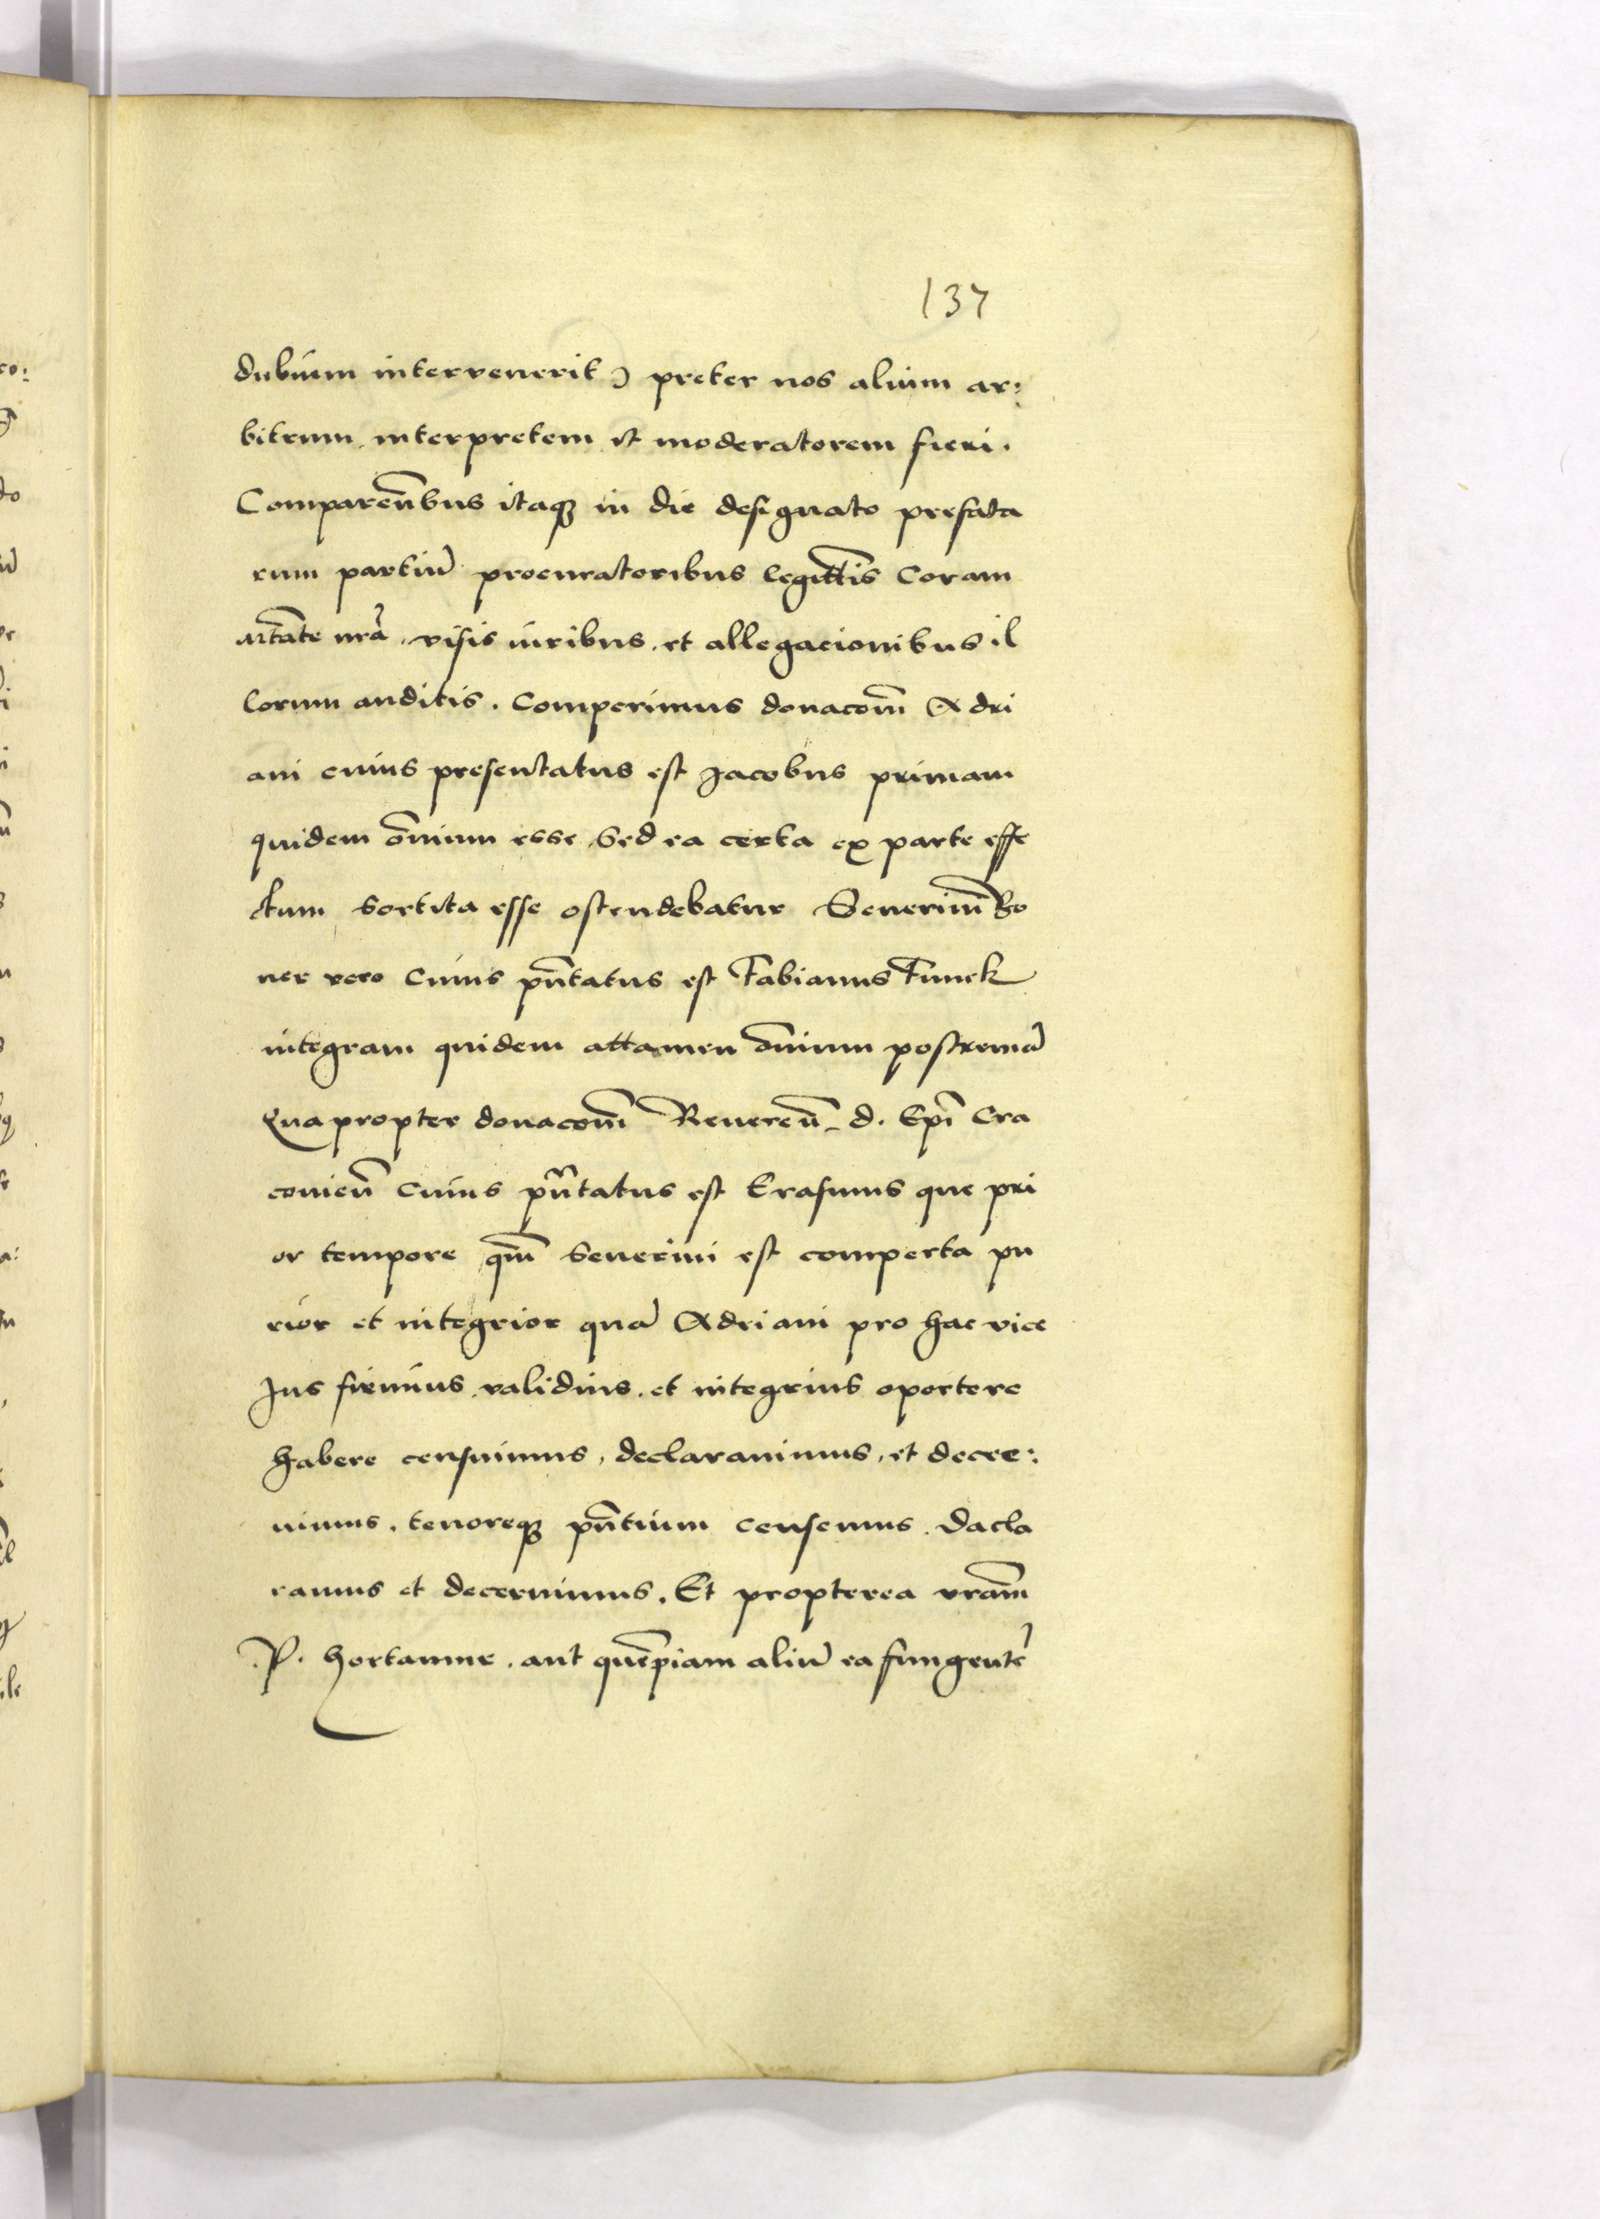 137
dubium intervenerit) preter nos alium ar:
bitrum interpretem et moderatorem fieri.
Comparen̄bus itaqꝫ in die designato prefata
rum partiū procuratoribus legitt̄is coram
mt̄ate nr̄a. visis iuribus. et allegacionibus il
lorum auditis. Comperimus donaco͞m Adri
ani cuius presentatus est Jacobus primam
quidem o͞nium esse Sed ea certa ex parte effe
ctum sortita esse ostendebatur Seuerinū Bo
ner vero Cuius pn̄tatus est Fabianus Funck
integram quidem attamen o͞nium postremā
Qua propter donaco͞m Reueren̄. d. Ep̄i Cra
couien̄ Cuius pn̄tatus est Erasmus que pri
or tempore qm̄ Seuerini est comperta pu
rior et integrior quā Adriani pro hac vice
Jus firmius. validius. et integrius oportere
habere censuimus, declarauimus, et decre:
uimus. tenoreqꝫ pn̄tium censemus. dacla
ramus et decernimus. Et propterea vram̄
.P. hortamur. aut quēpiam aliū ea fungentē